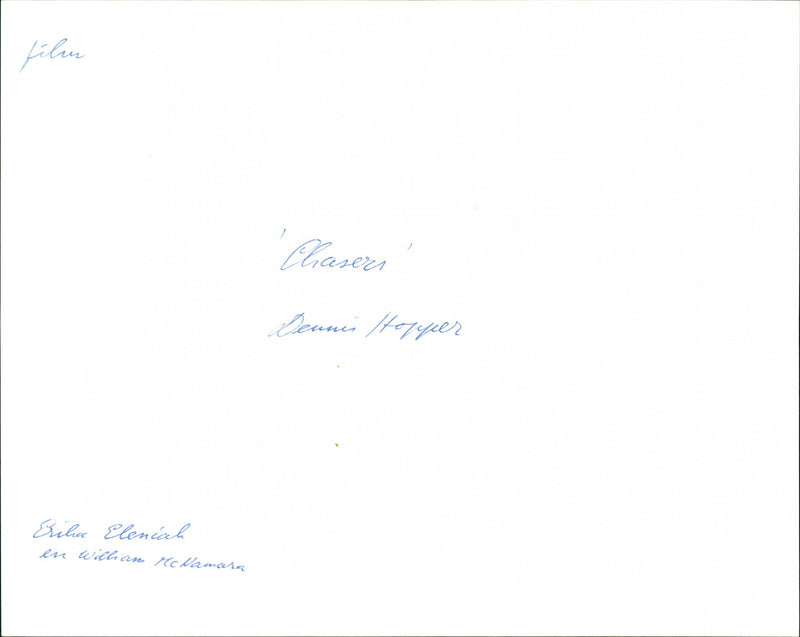 film
'Chasers'
Dennis Hopper
Erika Eleniak
en William McNamara